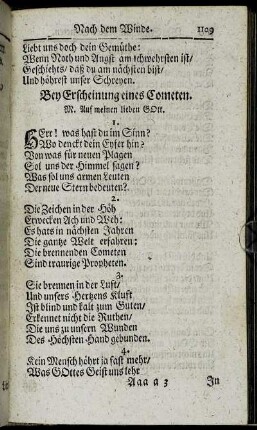 Nach dem Winde. 1109
Liebt uns doch dein Gemüthe:
Wenn Noth und Angst am schwehrsten ist/
Geschiehts/ daß du am nächsten bist/
Und höhrest unser Schreyen.
Bey Erscheinung eines Cometen.
M. Auf meinen lieben GOtt.
1.
HErr! was hast du im Sinn?
Wo denckt dein Eyfer hin?
Von was für neuen Plagen
Sol uns der Himmel sagen?
Was sol uns armen Leuten
Der neue Stern bedeuten?
2.
Die Zeichen in der Höh
Erwecken Ach und Weh:
Es hats in nächsten Jahren
Die gantze Welt erfahren:
Die brennenden Cometen
Sind traurige Propheten.
3.
Sie brennen in der Luft/
Und unsers Hertzens Kluft
Ist blind und kalt zum Guten/
Erkennet nicht die Ruhten/
Die uns zu unsern Wunden
Des Höchsten Hand gebunden.
4.
Kein Mensch höhrt ja fast mehr/
Was GOttes Geist uns lehr
Aaa a 3 In